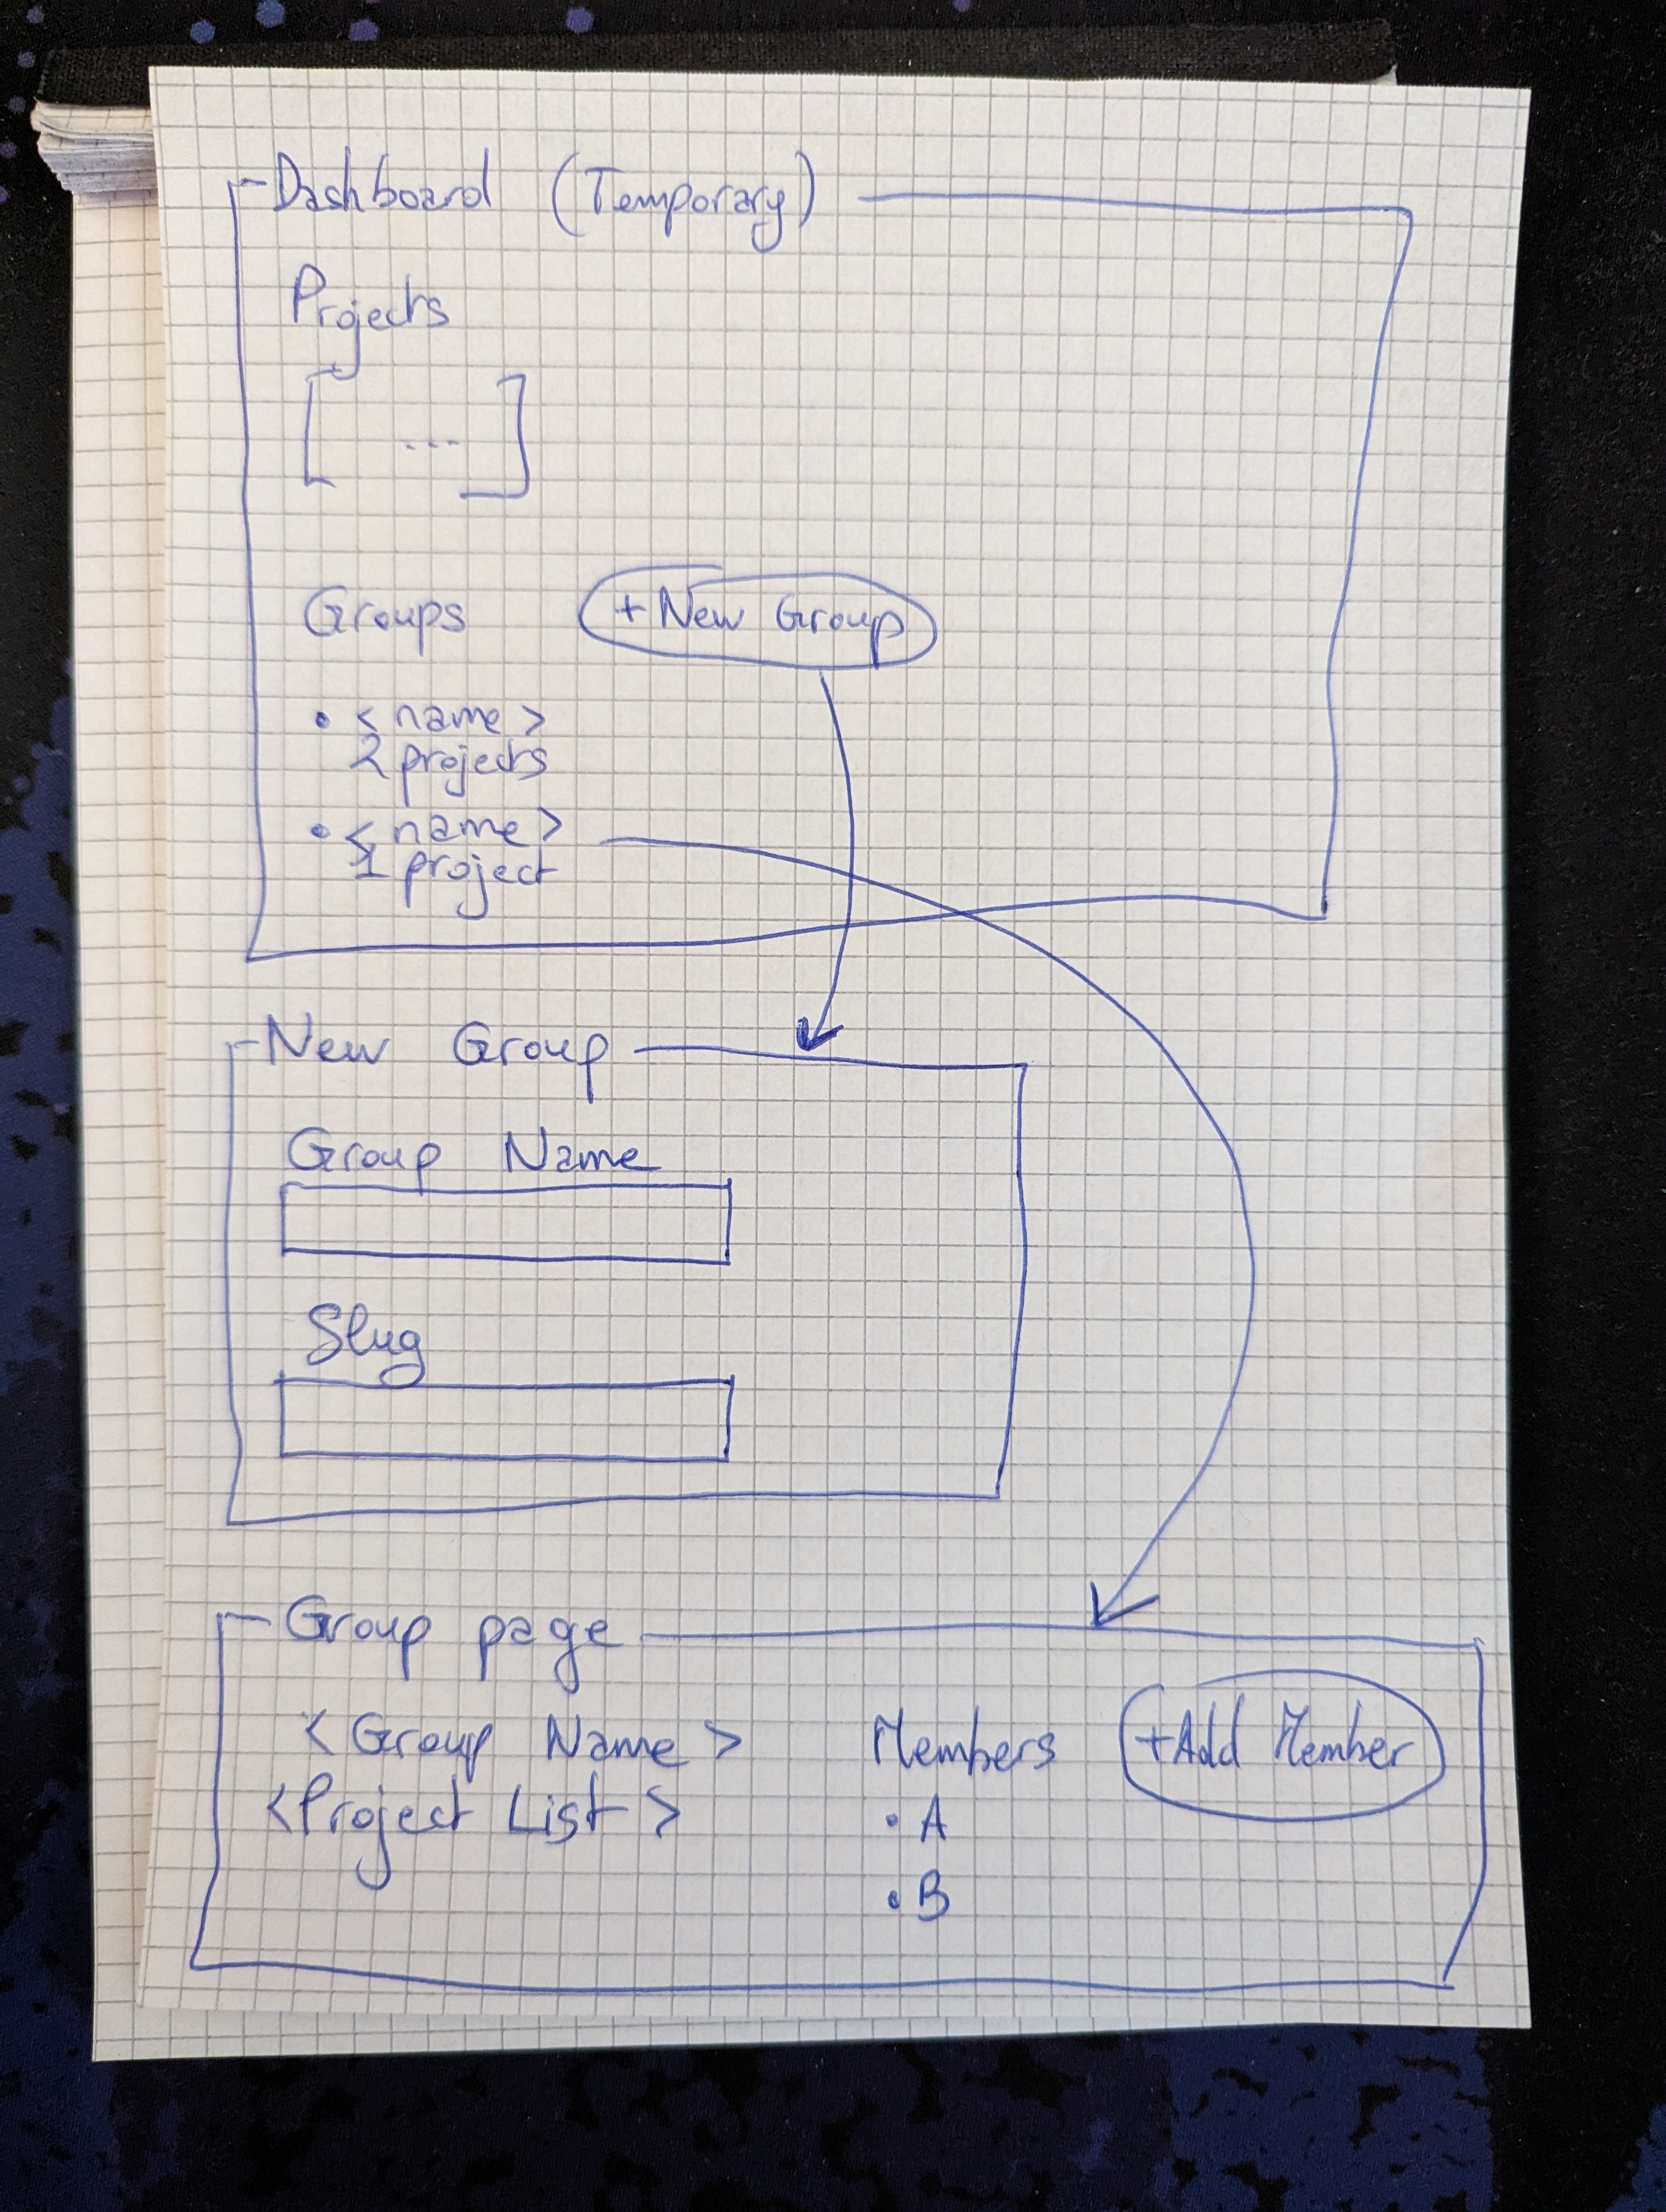 Dashboard (Temporary)
Projects
[ ... ]
Groups +New Group
• <name>
2 projects
• <name>
1 project
New Group
Group Name
Slug
Group page
<Group Name> Members +Add Member
<Project List> • A
• B